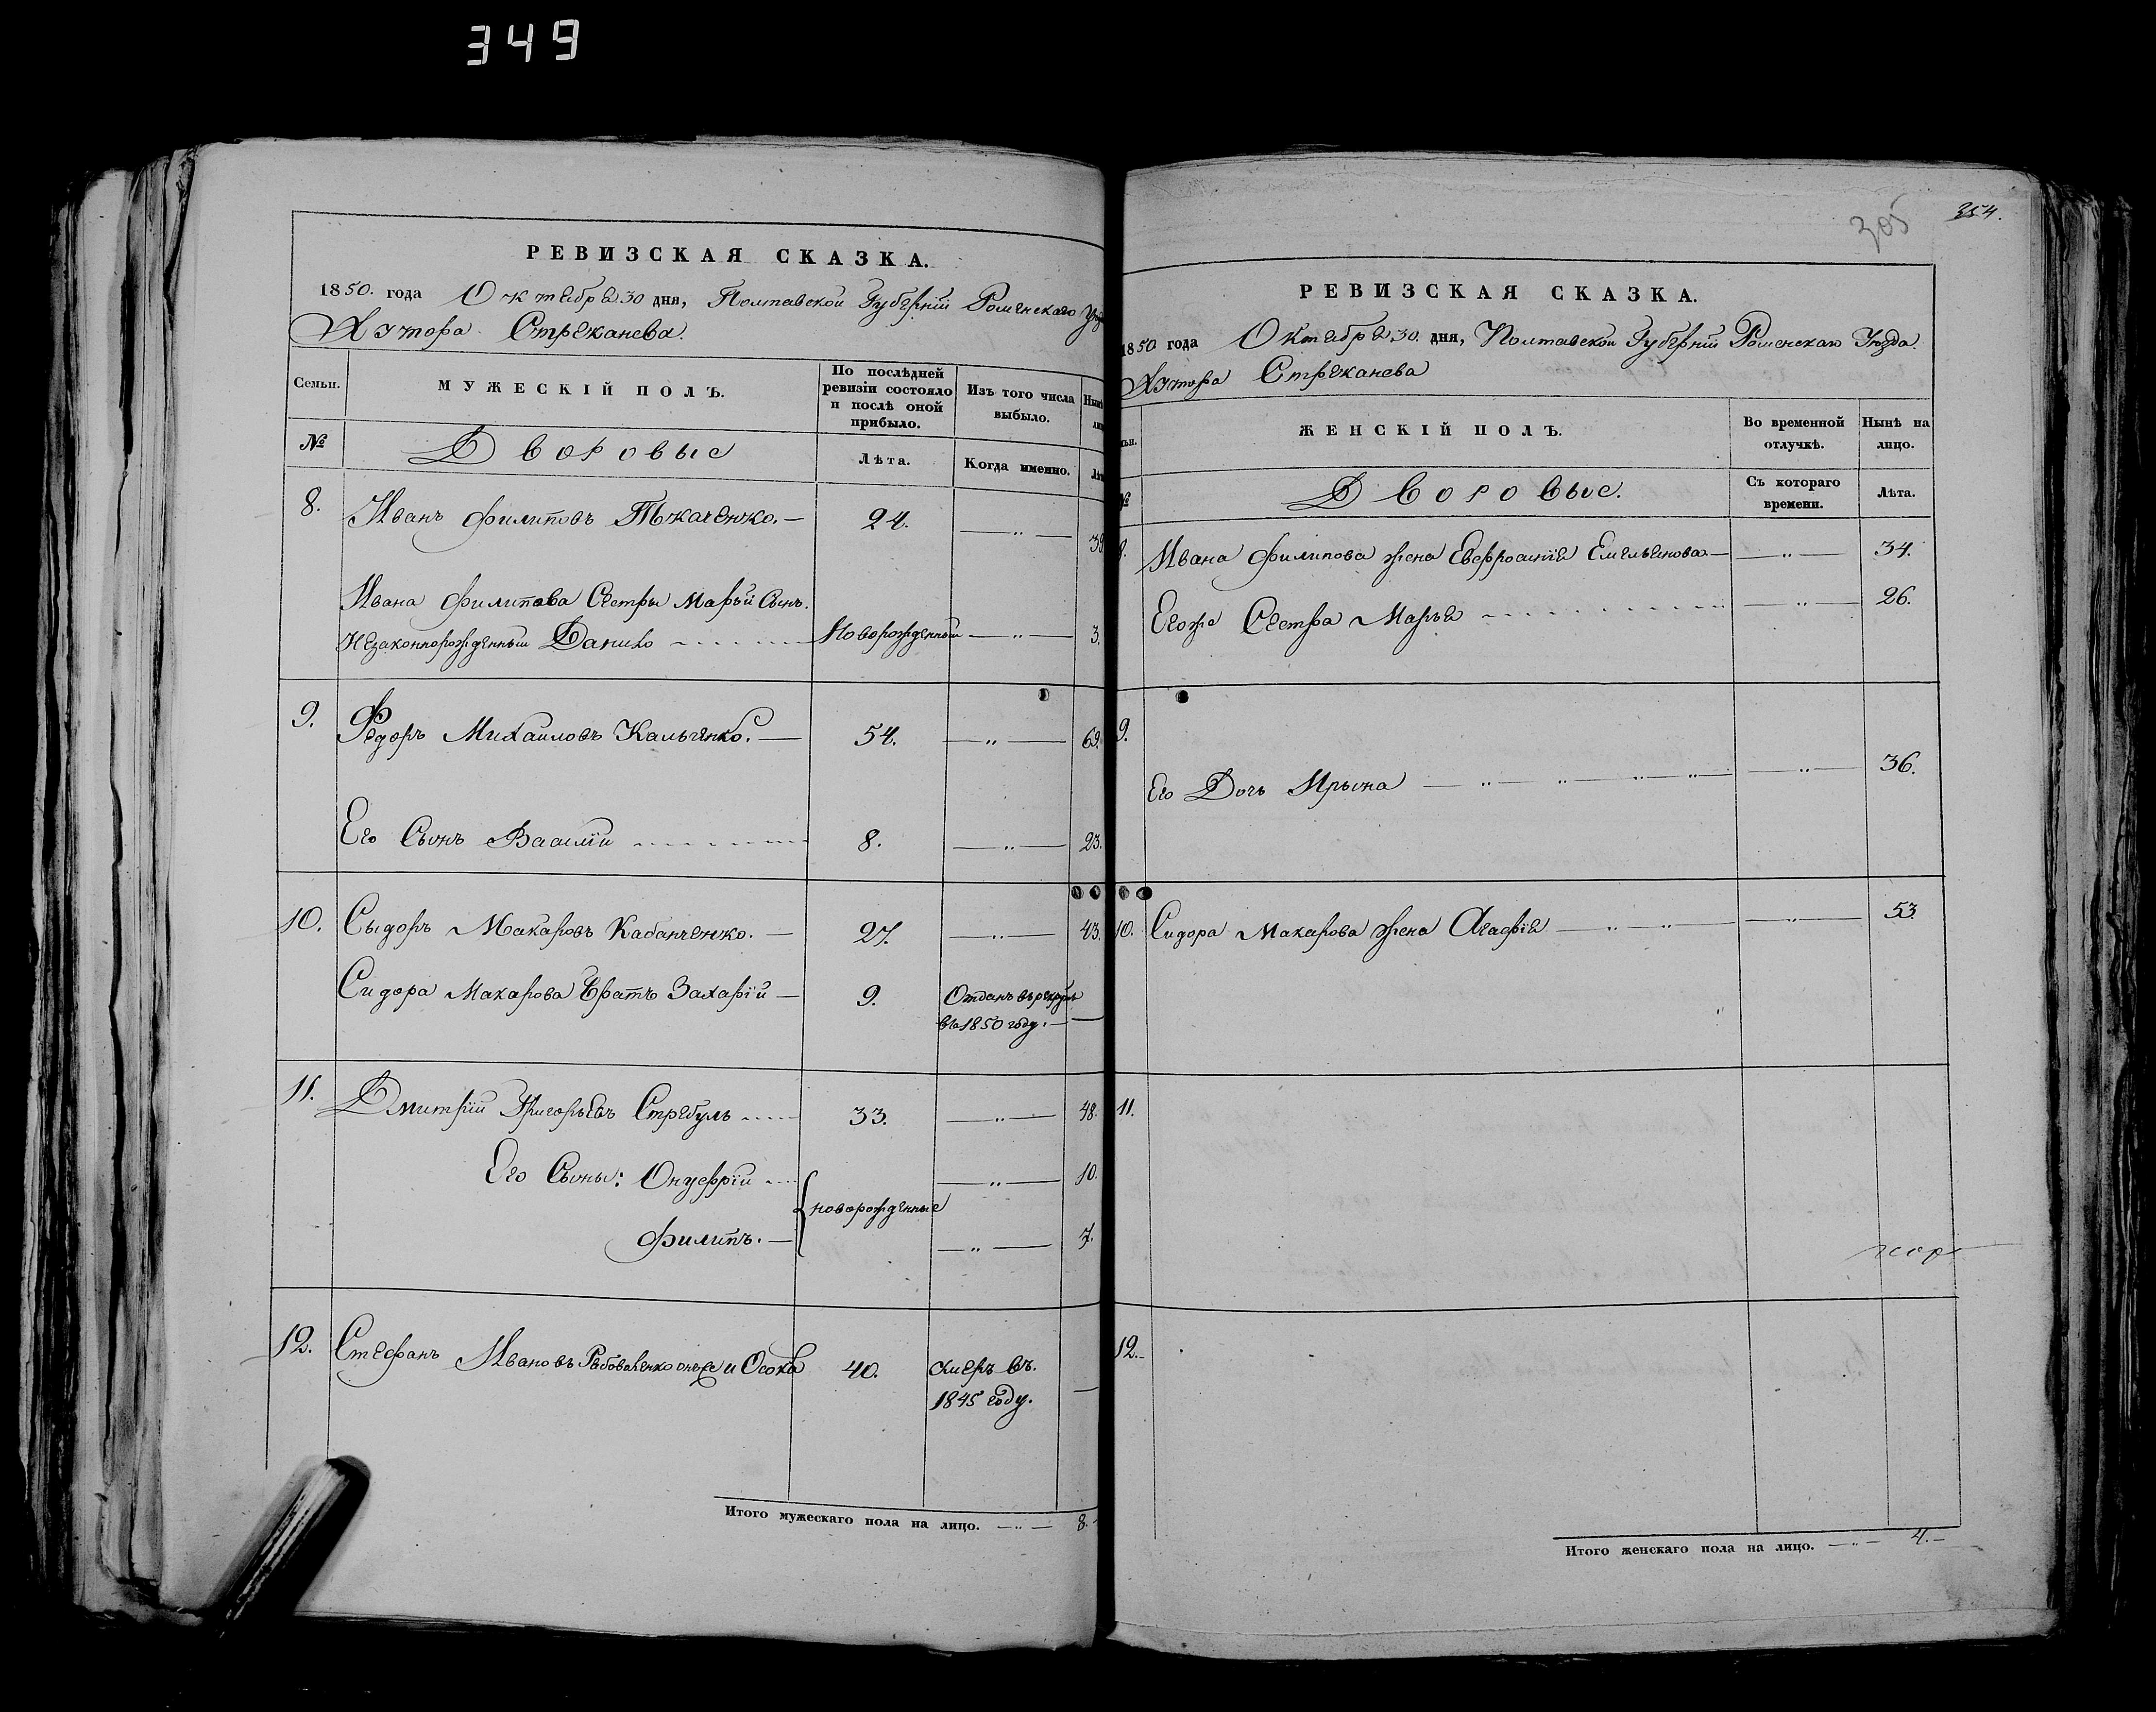 349
РЕВИЗСКАЯ СКАЗКА.
1850. года Октября 30 дня, Полтавской Губерніи Роменскаго
Хутора Стрѣканева.
Семьи.
МУЖЕСКІЙ ПОЛЪ.
По послѣдней ревизіи состояло и послѣ оной прибыло.
Изъ того числа выбыло.
№
Дворовые
Лѣта.
Когда именно.
8. Иванъ Филиповъ Ткаченко. — 24. — „ — 39
Ивана Филипова Сестры Марьи Сынъ.
Незаконнорожденный Данило Новорожденный — „ — 3.
9. Федоръ Михайловъ Кальченко. — 54. — „ — 69.
Его Сынъ Василій 8. — „ — 23.
10. Сыдоръ Макаровъ Кабанченко. — 27. — „ — 43.
Сидора Макарова Братъ Захарій — 9. Отданъ въ рекруты
въ 1850 году. —
11. Дмитрій Григорьевъ Стребуль 33. — „ — 48.
Его Сыны: Онуфрій — „ — 10.
новорожденные
Филипъ. — — „ — 7.
12. Стефанъ Ивановъ онъже и Осоха 40. Умеръ въ
1845 году. —
Итого мужескаго пола на лицо. — „ — 8.
305 354.
РЕВИЗСКАЯ СКАЗКА.
1850 года Октября 30. дня, Полтавской Губерніи Роменскаго Уѣзда.
Хутора Стрѣканева
ЖЕНСКІЙ ПОЛЪ.
Во временной отлучкѣ.
Нынѣ на лицо.
№
Дворовые.
Съ котораго времени.
Лѣта.
8. Ивана Филипова жена Евфросинія Емельянова — — „ — 34.
Егоже Сестра Марья — „ — 26.
9.
Его Дочь Ирына — „ — „ — „ — „ — — „ — 36.
10. Сидора Макарова жена Агафія — „ — „ — — „ — 53.
11.
12.
Итого женскаго пола на лицо. — „ — 4. —